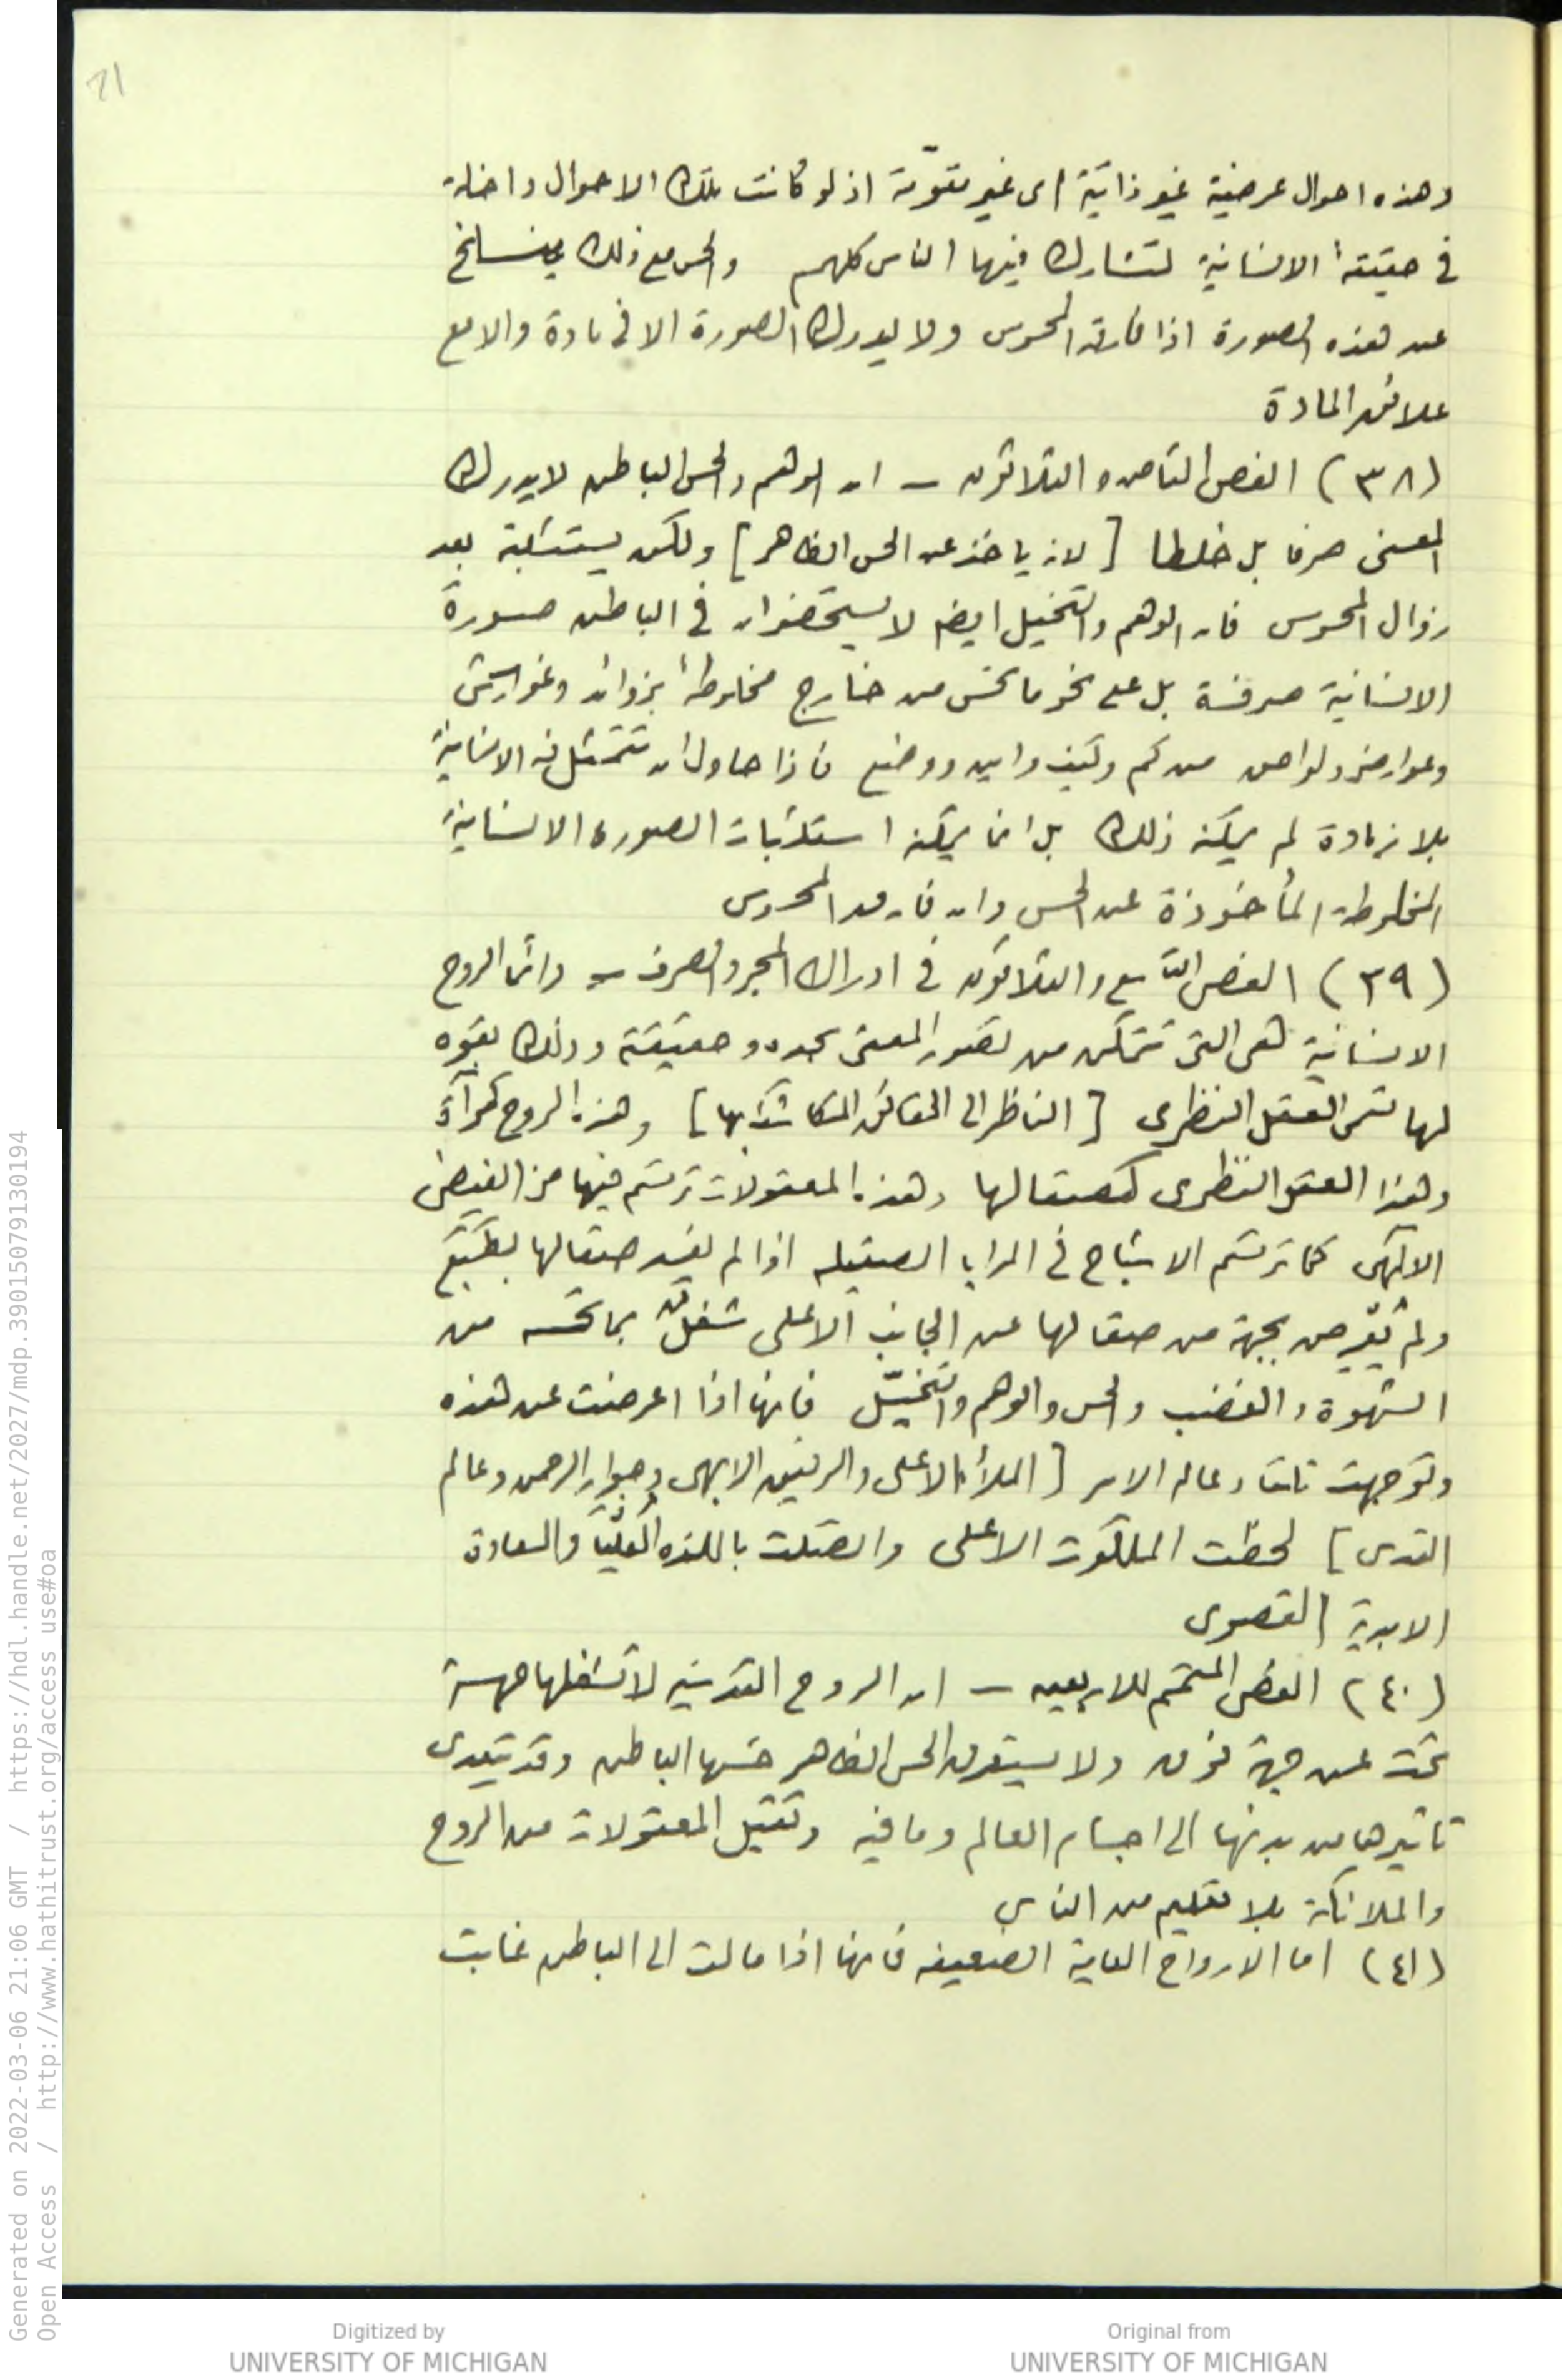 21
وهذه احوال عرضية غير ذاتية اى غير مقوّمة اذ لو كانت تلك الاحوال داخلة
في حقيقة الانسانية لتشارك فيها الناس كلهم والحس مع ذلك ينسلخ
عن هذه الصورة اذا فارقه المحسوس ولا يدرك الصورة الا في مادة والا مع
علائق المادة
(٣٨) الفص الثامن والثلاثون – ان الوهم والحس الباطن لا يدرك
المعنى صرفا بل خلطا [لانه يأخذ عن الحس الظاهر] ولكن يستثبته بعد
زوال المحسوس فان الوهم والتخيل ايضا لا يستحضران في الباطن صورة
الانسانية صرفة بل على نحو ما تحس من خارج مخلوطة بزوائد وغواش
وعوارض ولواحق من كم وكيف واين ووضع فاذا حاول ان تتمثل فيه الانسانية
بلا زيادة لم يمكنه ذلك بل انما يمكنه استثبات الصورة الانسانية
المخلوطة المأخوذة عن الحس وان فارق المحسوس
(٣٩) الفص التاسع والثلاثون في ادراك المجرد الصرف – وانما الروح
الانسانية هى التى تتمكن من تصور المعنى بحده وحقيقته وذلك بقوه
لها تسمى العقل النظرى [الناظر الى الحقائق المكاشف بها] وهذه الروح كمرآة
وهذا العقل النظرى كصقالها وهذه المعقولات ترتسم فيها من الفيض
الالهى كما ترتسم الاشباح في المرايا الصقيله اذا لم يفسد صقالها بطبع
ولم يعرض بجهة من صقالها عن الجانب الاعلى شغل بما تحته من
الشهوة والغضب والحس والوهم والتخيّل فانها اذا اعرضت عن هذه
وتوجهت تلقاء عالم الامر [الملأ الاعلى والرفيق الابهى وجوار الرحمن وعالم
القدس] لحظت الملكوت الاعلى واتصلت باللذه العليا والسعادة
الابدية القصوى
(٤٠) الفص المتمم للاربعين – ان الروح القدسيه لا تشغلها جهة
تحت عن جهة فوق ولا يستغرق الحس الظاهر حسها الباطن وقد يتعدى
تاثيرها من بدنها الى اجسام العالم وما فيه وتقبل المعقولات من الروح
والملائكة بلا تعليم من الناس
(٤١) اما الارواح العامية الضعيفه فانها اذا مالت الى الباطن غابت
Generated on 2022-03-06 21:06 GMT / https://hdl.handle.net/2027/mdp.39015079130194
Open Access / http://www.hathitrust.org/access_use#oa
Digitized by
UNIVERSITY OF MICHIGAN
Original from
UNIVERSITY OF MICHIGAN